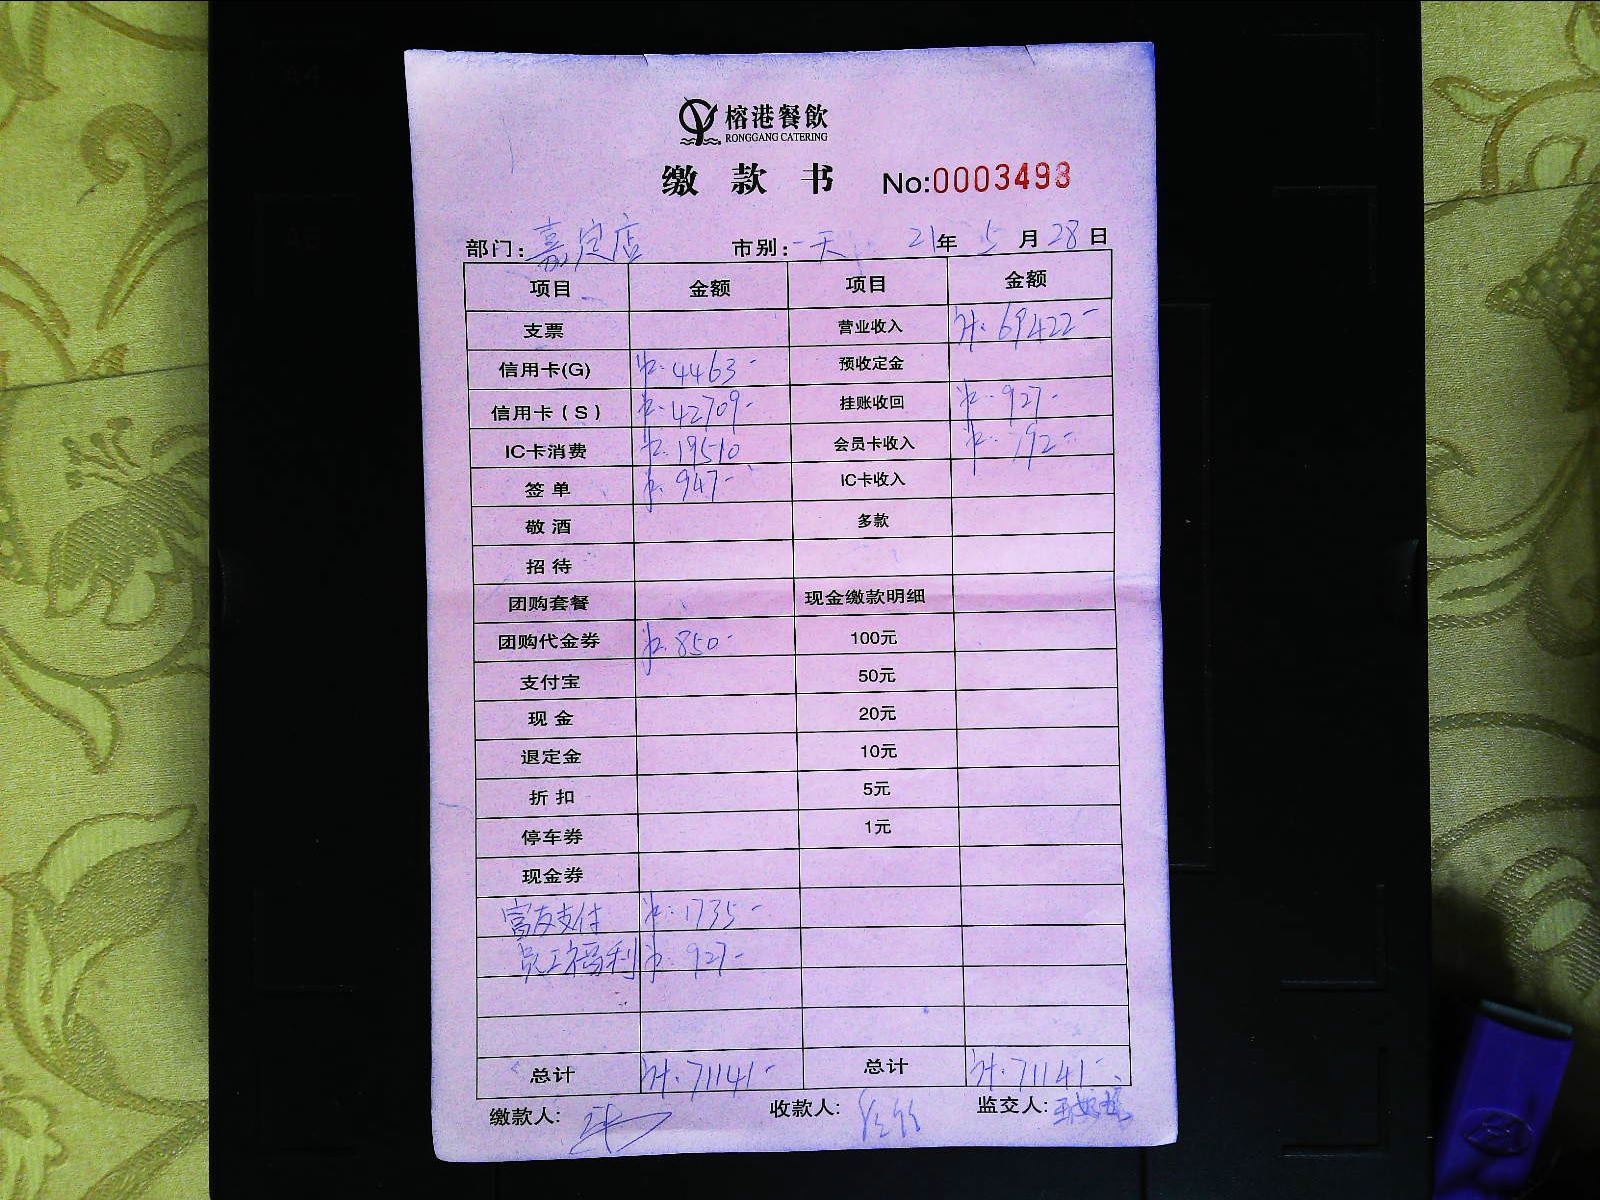 榕港餐飲
RONGGANG CATERING
缴款书 No:0003493
部门: 嘉定店 市别: 一天 21年 5月 28日
项目 金额 项目 金额
支票 营业收入 计: 69422-
信用卡(G) 4463- 预收定金
信用卡(S) 42709- 挂账收回 927-
IC卡消费 19510 会员卡收入 792-
签单 947- IC卡收入
敬酒 多款
招待
团购套餐 现金缴款明细
团购代金券 850- 100元
支付宝 50元
现金 20元
退定金 10元
折扣 5元
停车券 1元
现金券
富友支付 1735-
员工福利 927-
总计 计: 71141- 总计 计: 71141-
缴款人: 收款人: 监交人: